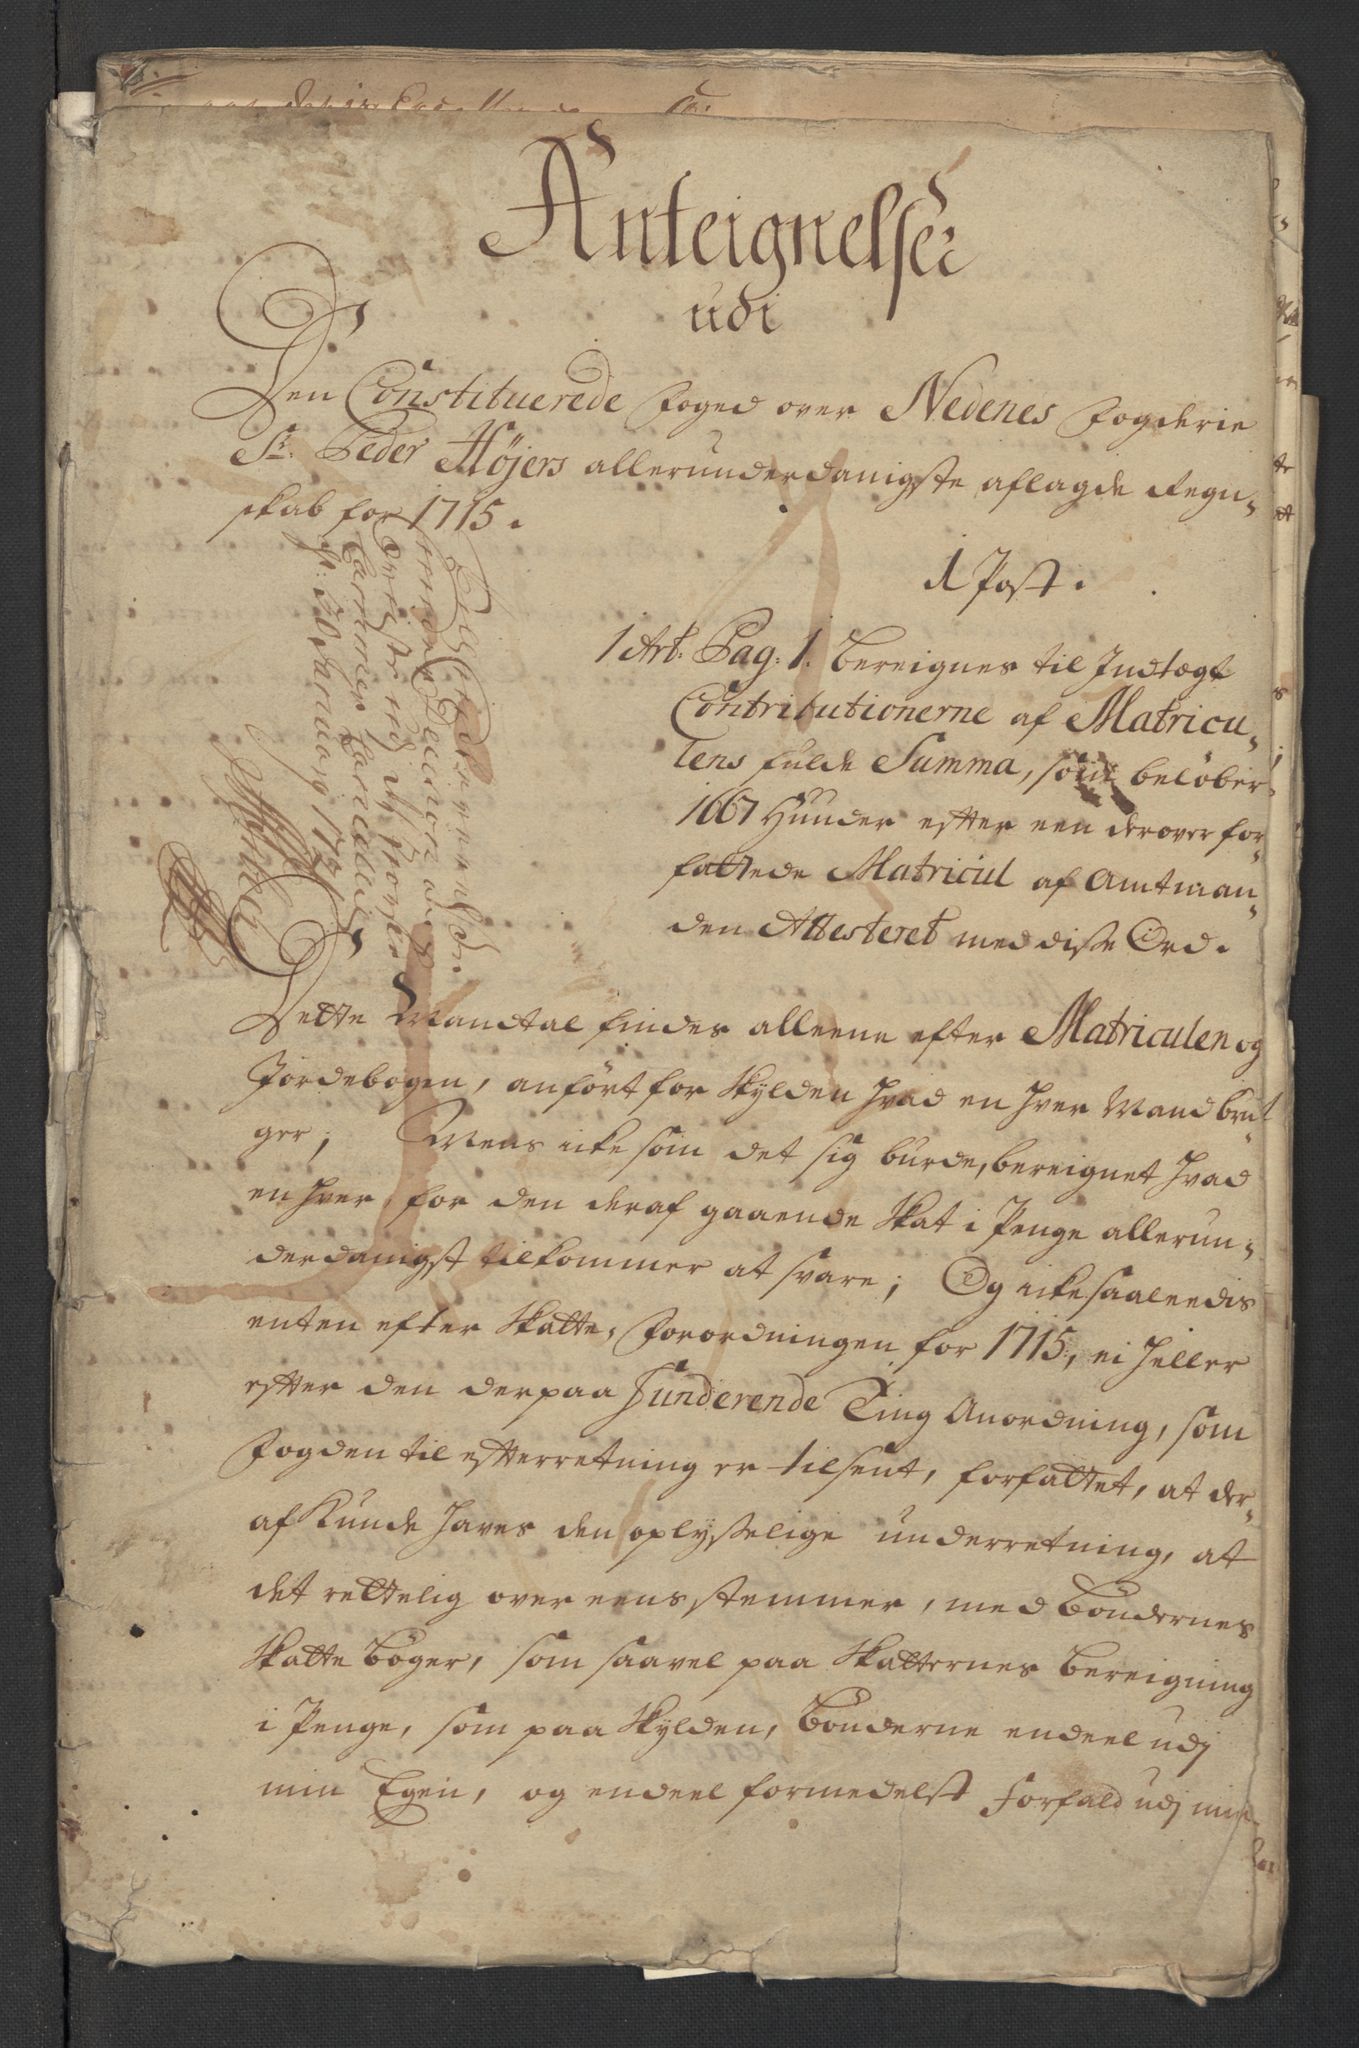 Anteignelser
udi
Den Constituerede Foged over Nedenes Fogderie
Sr. Peder Höjers allerunderdanigste aflagde Regn-
skab for 1715.
1 Post.
1 Art: Pag: 1. bereignes til Indtægt
Contributionerne af Matricu-
lens fulde Summa, som belöber
1667 Huuder efter een derover for-
fattede Matricul af Amtman-
den Attesteret med disse Ord.
Dette Mandtal findes alleene efter Matriculen og
Jordebogen, anfört for Skylden hvad en hver Mand bru-
ger; Mens icke som det sig burde, bereignet hvad
en hver for den deraf gaaende Skat i Penge allerun-
derdanigst tilkommer at svare; Og icke saaleedis
enten efter Skatte, Forordningen for 1715, ei heller
efter den derpaa Funderende Ting Anordning, som
Fogden til efterretning er tilsent, forfattet, at der-
af kunde haves den oplysselige underretning, at
det rettelig over eens stemmer, med böndernes
Skatte böger, som saavel paa Skatternes bereigning
i Penge, som paa Skylden, bönderne endeel udj
min Egen, og endeel formedelst Forfald udj min